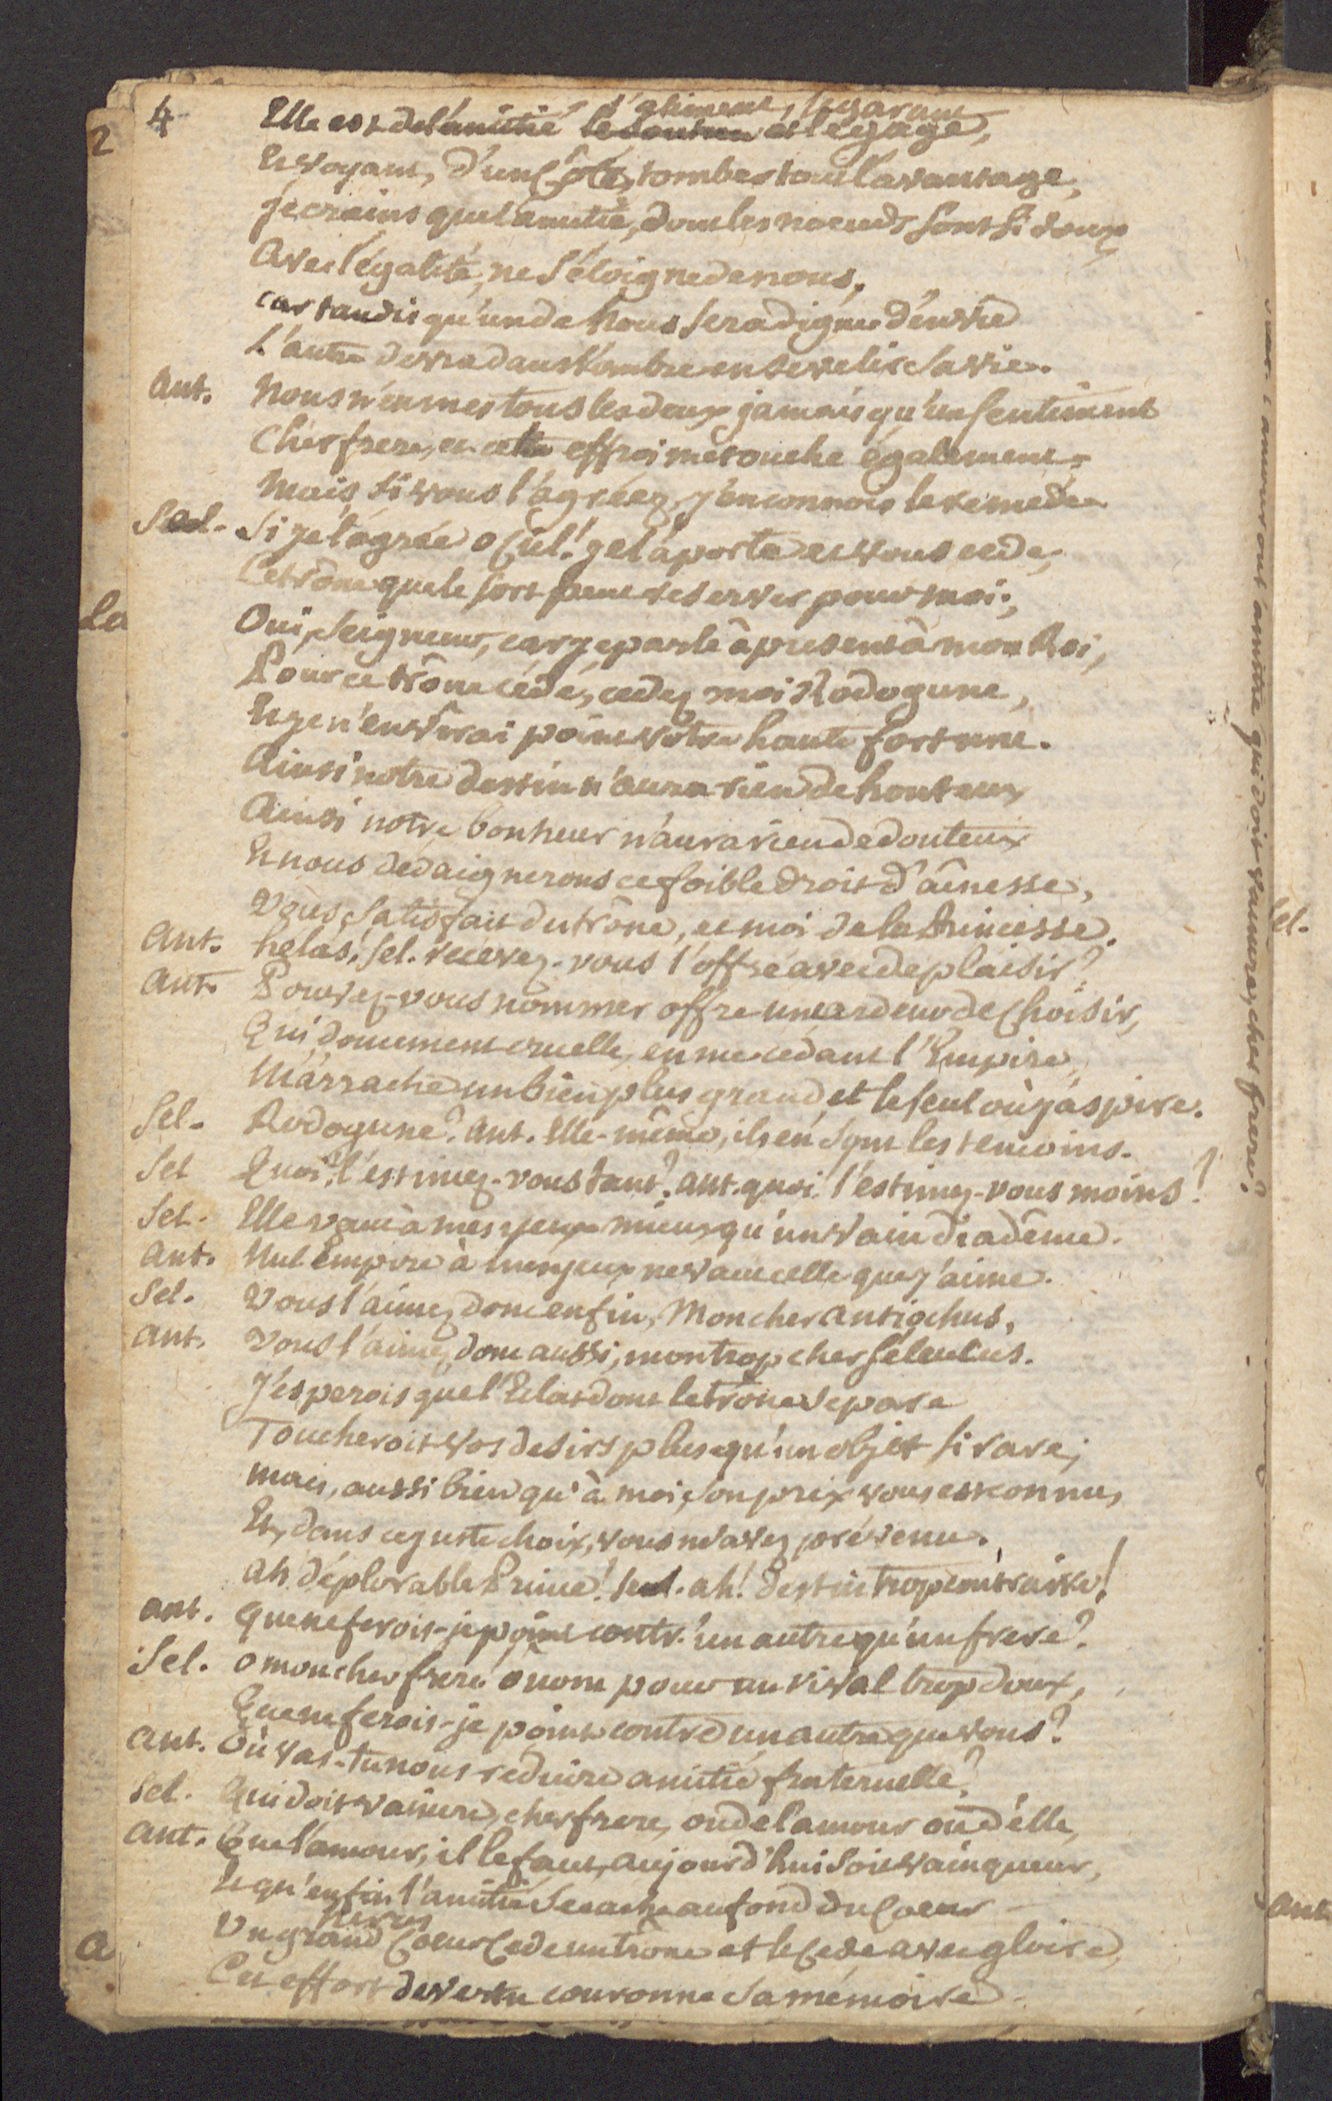 4
Elle est de l'amitié l'aliment, le garant
le soutien et le gage,
Et voyant, d'un Côté, tomber tout l'avantage,
Je crains que l'amitié, dont les noeuds sont si doux
Avec l'égalité, ne s'éloigne de nous,
car tandis qu'un de nous sera digne d'envie
L'autre devra dans l'ombre ensevelir sa vie.
Ant. Nous n'eumes tous les deux jamais qu'un sentiment
Cher frere, et cette effroi me touche également,
Mais, si vous l'agréez, j'en connois le remede.
Sel. Si je l'agrée o Ciel! je l'aporte et vous cede,
Le trône que le sort peut reserver pour moi;
Oui, Seigneur, car je parle à present à mon Roi,
Pour ce trône cédé, cedez moi Rodogune,
Et je n'envîrai point votre haute fortune.
Ainsi notre destin n'aura rien de honteux
Ainsi notre bonheur n'aura rien de douteux
Et nous dedaignerons ce foible droit d'aînesse,
Vous, satisfait du trône, et moi de la Princesse.
Ant. helas! Sel. recevez-vous l'offre avec deplaisir?
Ant. Pouvez-vous nommer offre une ardeur de Choisir,
Qui, doucement cruelle, en me cedant l'Empire,
M'arrache un bien plus grand et le seul où j'aspire.
Sel. Rodogune? Ant. Elle-même, ils en sont les temoins.
Sel Quoi? l'estimez-vous tant? Ant. quoi! l'estimez-vous moins?
Sel. Elle vaut à mes yeux mieux qu'un vain diadême.
Ant. Nul Empire à mes yeux ne vaut celle que j'aime.
Sel. Vous l'aimez donc enfin, Mon cher Antiochus,
Ant. Vous l'aimez donc aussi, mon trop cher Seleucus.
J'esperois que l'Eclat dont le trône se pare
Toucheroit vos desirs plus qu'un objet si rare;
mais, aussi bien qu'à moi, son prix vous est connu,
Et, dans ce juste choix, vous m'avez prévenu.
ah déplorable Prince! Sel. ah! destin trop contraire!
Ant. que ne ferois-je point contr'un autre qu'un frere?
Sel. o mon cher frere! o nom pour un rival trop doux,
Que ne ferois-je point contre un autre que vous?
Ant. Où vas-tu nous reduire amitié fraternelle?
Sel. Qui doit vaincre, cher frere, ou de l'amour ou d'elle,
Ant. Que l'amour, il le faut, aujourd'hui soit vainqueur,
Et qu'enfin l'amitié se cache au fond du Coeur
Un grand Coeur Cede un trone et le Cede avec gloire,
Cet effort de vertu couronne sa mémoire
2
La
a
ou l'amitié qui doit vaincre, cher frere?
Sel.
Ant